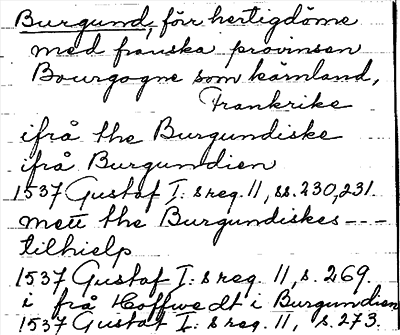 Burgund, förr hertigdöme
med franska provinsen
Bourgogne som kärnland,
Frankrike
ifrå the Burgundiske
ifrå Burgundien
1537 Gustaf I:s reg. 11, ss. 230, 231.
mett the Burgundiskes ---
tilhielp
1537, Gustaf I:s reg. 11, s. 269
i frå Hoffwedt i Burgundien
1537 Gustaf I:s reg. 11, s. 273.